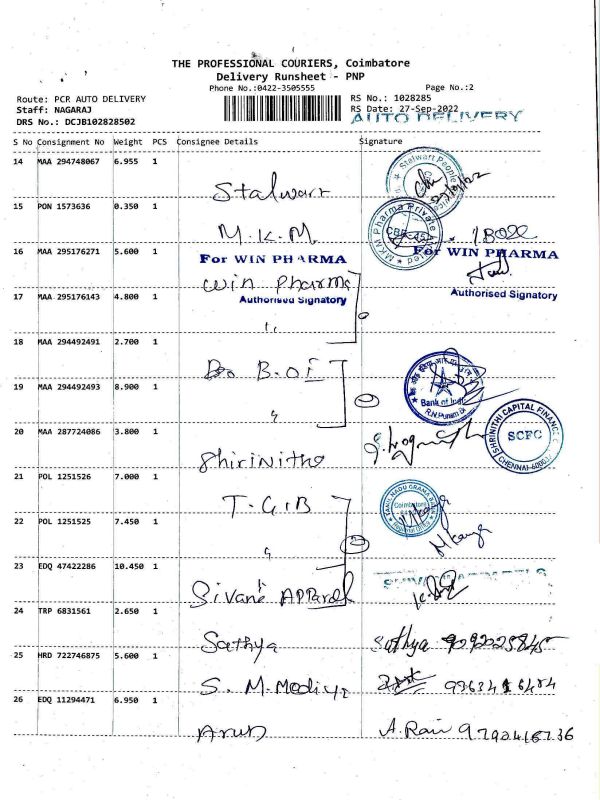 THE PROFESSIONAL COURIERS, Coimbatore
Delivery Runsheet - PNP
Phone No.:0422-3505555
Page No.:2
Route: PCR AUTO DELIVERY
RS No.: 1028285
Staff: NAGARAJ
RS Date: 27-Sep-2022
DRS No.: DCJB102828502
AUTO DELIVERY
S No Consignment No Weight PCS Consignee Details Signature
14 MAA 294748067 6.955 1
Stalwart
Stalwart People
27/9/22
15 PON 1573636 0.350 1
M.K.M.
Pharma Private
16 MAA 295176271 5.600 1
For WIN PHARMA
For WIN PHARMA
Win Pharma
17 MAA 295176143 4.800 1
Authorised Signatory
Authorised Signatory
18 MAA 294492491 2.700 1
B.O.I
19 MAA 294492493 8.900 1
Bank of India
R.N.Puram
20 MAA 287724086 3.800 1
Shirinitha
SHRINITHI CAPITAL FINANCE
SCFC
CHENNAI-600
21 POL 1251526 7.000 1
T.G.B
TAMIL NADU GRAMA BANK
Coimbatore
22 POL 1251525 7.450 1
23 EDQ 47422286 10.450 1
Sivane APParel
24 TRP 6831561 2.650 1
Sathya
Sathya
25 HRD 722746875 5.600 1
S. M. Modiyi
26 EDQ 11294471 6.950 1
Arun
A. Ran